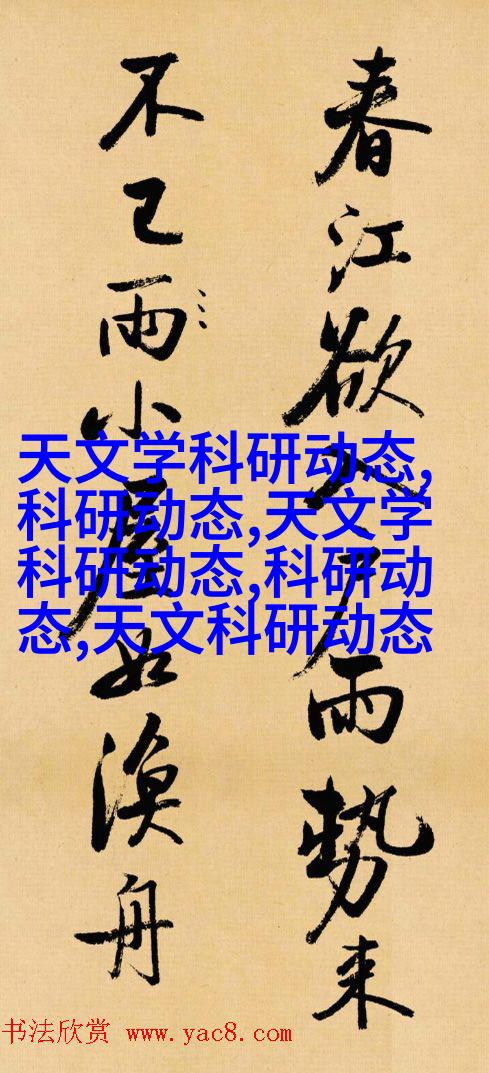 春江欲入戶雨勢来
不已雨小屋如漁舟
天文学科研动态,
科研动态,天文学
科研动态,科研动
态,天文科研动态
书法欣赏 www.yac8.com